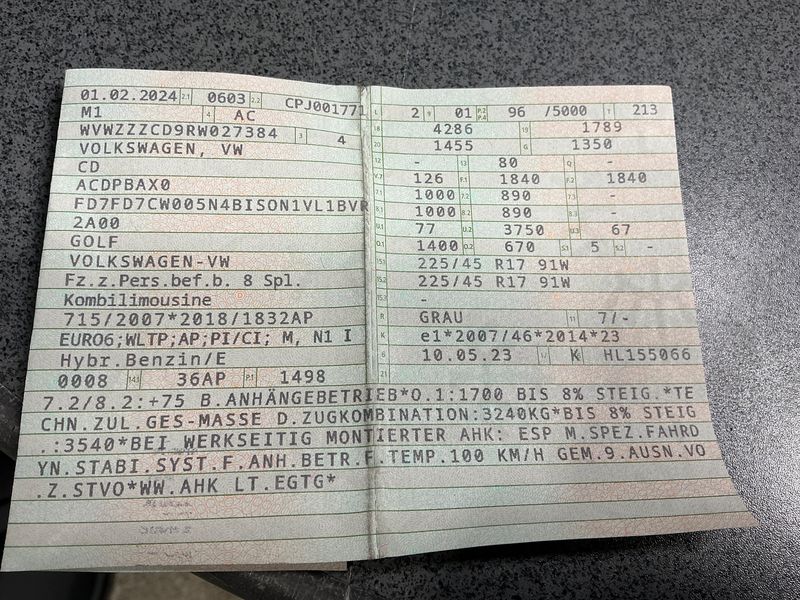 01.02.2024 2.1 0603 2.2 CPJ001771
M1 4 AC
WVWZZZCD9RW027384 3 4
VOLKSWAGEN, VW
CD
ACDPBAX0
FD7FD7CW005N4BISON1VL1BVR
2A00
GOLF
VOLKSWAGEN-VW
Fz.z.Pers.bef.b. 8 Spl.
Kombilimousine
715/2007*2018/1832AP
EURO6;WLTP;AP;PI/CI; M, N1 I
Hybr.Benzin/E
0008 14.1 36AP P.1 1498
L 2 9 01 P.2 P.4 96 /5000 T 213
18 4286 19 1789
20 1455 G 1350
12 - 13 80 Q -
V.7 126 F.1 1840 F.2 1840
7.1 1000 7.2 890 7.3 -
8.1 1000 8.2 890 8.3 -
U.1 77 U.2 3750 U.3 67
O.1 1400 O.2 670 S.1 5 S.2 -
15.1 225/45 R17 91W
15.2 225/45 R17 91W
15.3 -
R GRAU 11 7/-
K e1*2007/46*2014*23
6 10.05.23 17 K HL155066
21
7.2/8.2:+75 B.ANHÄNGEBETRIEB*O.1:1700 BIS 8% STEIG.*TE
CHN.ZUL.GES-MASSE D.ZUGKOMBINATION:3240KG*BIS 8% STEIG
.:3540*BEI WERKSEITIG MONTIERTER AHK: ESP M.SPEZ.FAHRD
YN.STABI.SYST.F.ANH.BETR.F.TEMP.100 KM/H GEM.9.AUSN.VO
.Z.STVO*WW.AHK LT.EGTG*